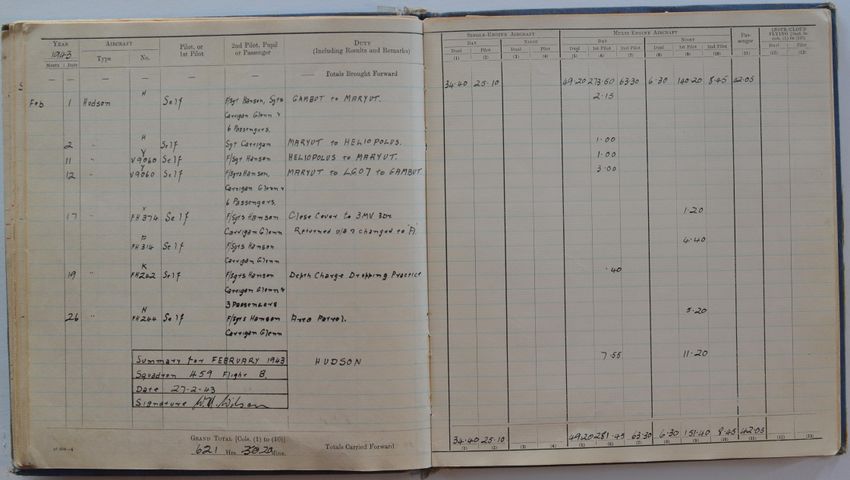 YEAR AIRCRAFT Pilot, or 2nd Pilot, Pupil DUTY
1943 Type No. 1st Pilot or Passenger (Including Results and Remarks)
Month Date
— — — — — — Totals Brought Forward
H
Feb 1 Hudson Self F/Sgt Hanson, Sgts GAMBUT to MARYUT.
Carrigan Glenn &
6 Passengers.
H
2 " Self Sgt Carrigan MARYUT to HELIOPOLUS.
Y
11 " V9060 Self F/Sgt Hanson HELIOPOLUS to MARYUT.
Y
12 " V9060 Self F/Sgts Hanson, MARYUT to LG07 to GAMBUT.
Carrigan Glenn &
6 Passengers.
17 " FH374 Self F/Sgts Hanson Close Cover to 3MV
Carrigan Glenn Returned & changed to
FH314 Self F/Sgts Hanson
Carrigan Glenn
K
19 " FH262 Self F/Sgts Hanson Depth Charge Dropping Practice
Carrigan Glenn &
3 Passengers
N
26 " FH244 Self F/Sgts Hanson Area Patrol.
Carrigan Glenn
Summary for FEBRUARY 1943 HUDSON
Squadron 459 Flight B.
Date 27-2-43
Signature Wilson
GRAND TOTAL [Cols. (1) to (10)] Totals Carried Forward
621 Hrs. 30 20 Mins.
SINGLE-ENGINE AIRCRAFT MULTI-ENGINE AIRCRAFT PASSENGER INSTR/CLOUD FLYING [Incl. in cols. (1) to (10)]
DAY NIGHT DAY NIGHT
Dual Pilot Dual Pilot Dual 1st Pilot 2nd Pilot Dual 1st Pilot 2nd Pilot Dual Pilot
(1) (2) (3) (4) (5) (6) (7) (8) (9) (10) (11) (12) (13)
34.40 25.10 49.20 273.50 63.30 6.30 140.20 8.45 42.05
2.15
1.00
1.00
3.00
1.20
4.40
.40
5.20
7.55 11.20
34.40 25.10 49.20 281.45 63.30 6.30 151.40 8.45 42.05
(1) (2) (3) (4) (5) (6) (7) (8) (9) (10) (11) (12) (13)